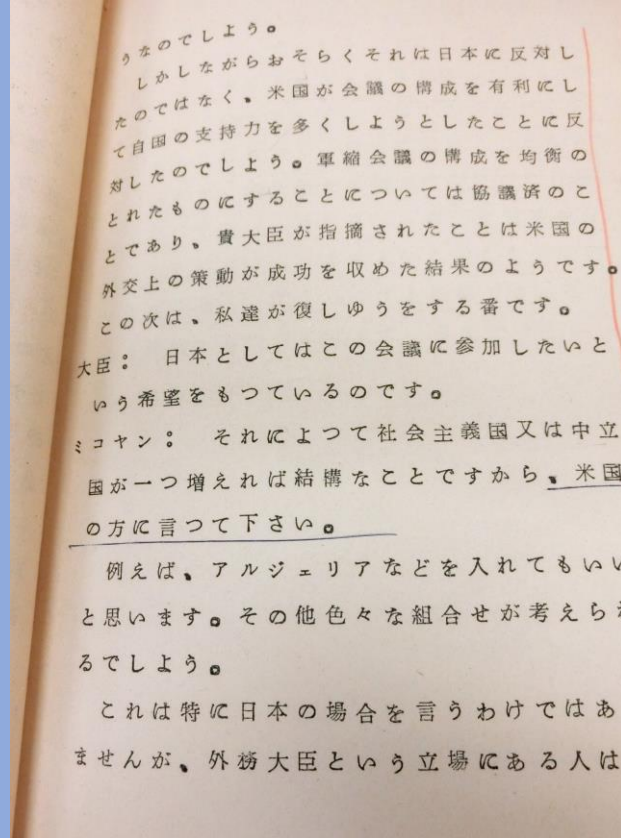 うなのでしよう。
しかしながらおそらくそれは日本に反対し
たのではなく、米国が会議の構成を有利にし
て自国の支持力を多くしようとしたことに反
対したのでしよう。軍縮会議の構成を均衡の
とれたものにすることについては協議済のこ
とであり、貴大臣が指摘されたことは米国の
外交上の策動が成功を収めた結果のようです。
この次は、私達が復しゆうをする番です。
大臣： 日本としてはこの会議に参加したいと
いう希望をもつているのです。
ミコヤン： それによつて社会主義国又は中立
国が一つ増えれば結構なことですから、米国
の方に言つて下さい。
例えば、アルジェリアなどを入れてもいい
と思います。その他色々な組合せが考えら
るでしよう。
これは特に日本の場合を言うわけではあ
ませんが、外務大臣という立場にある人は